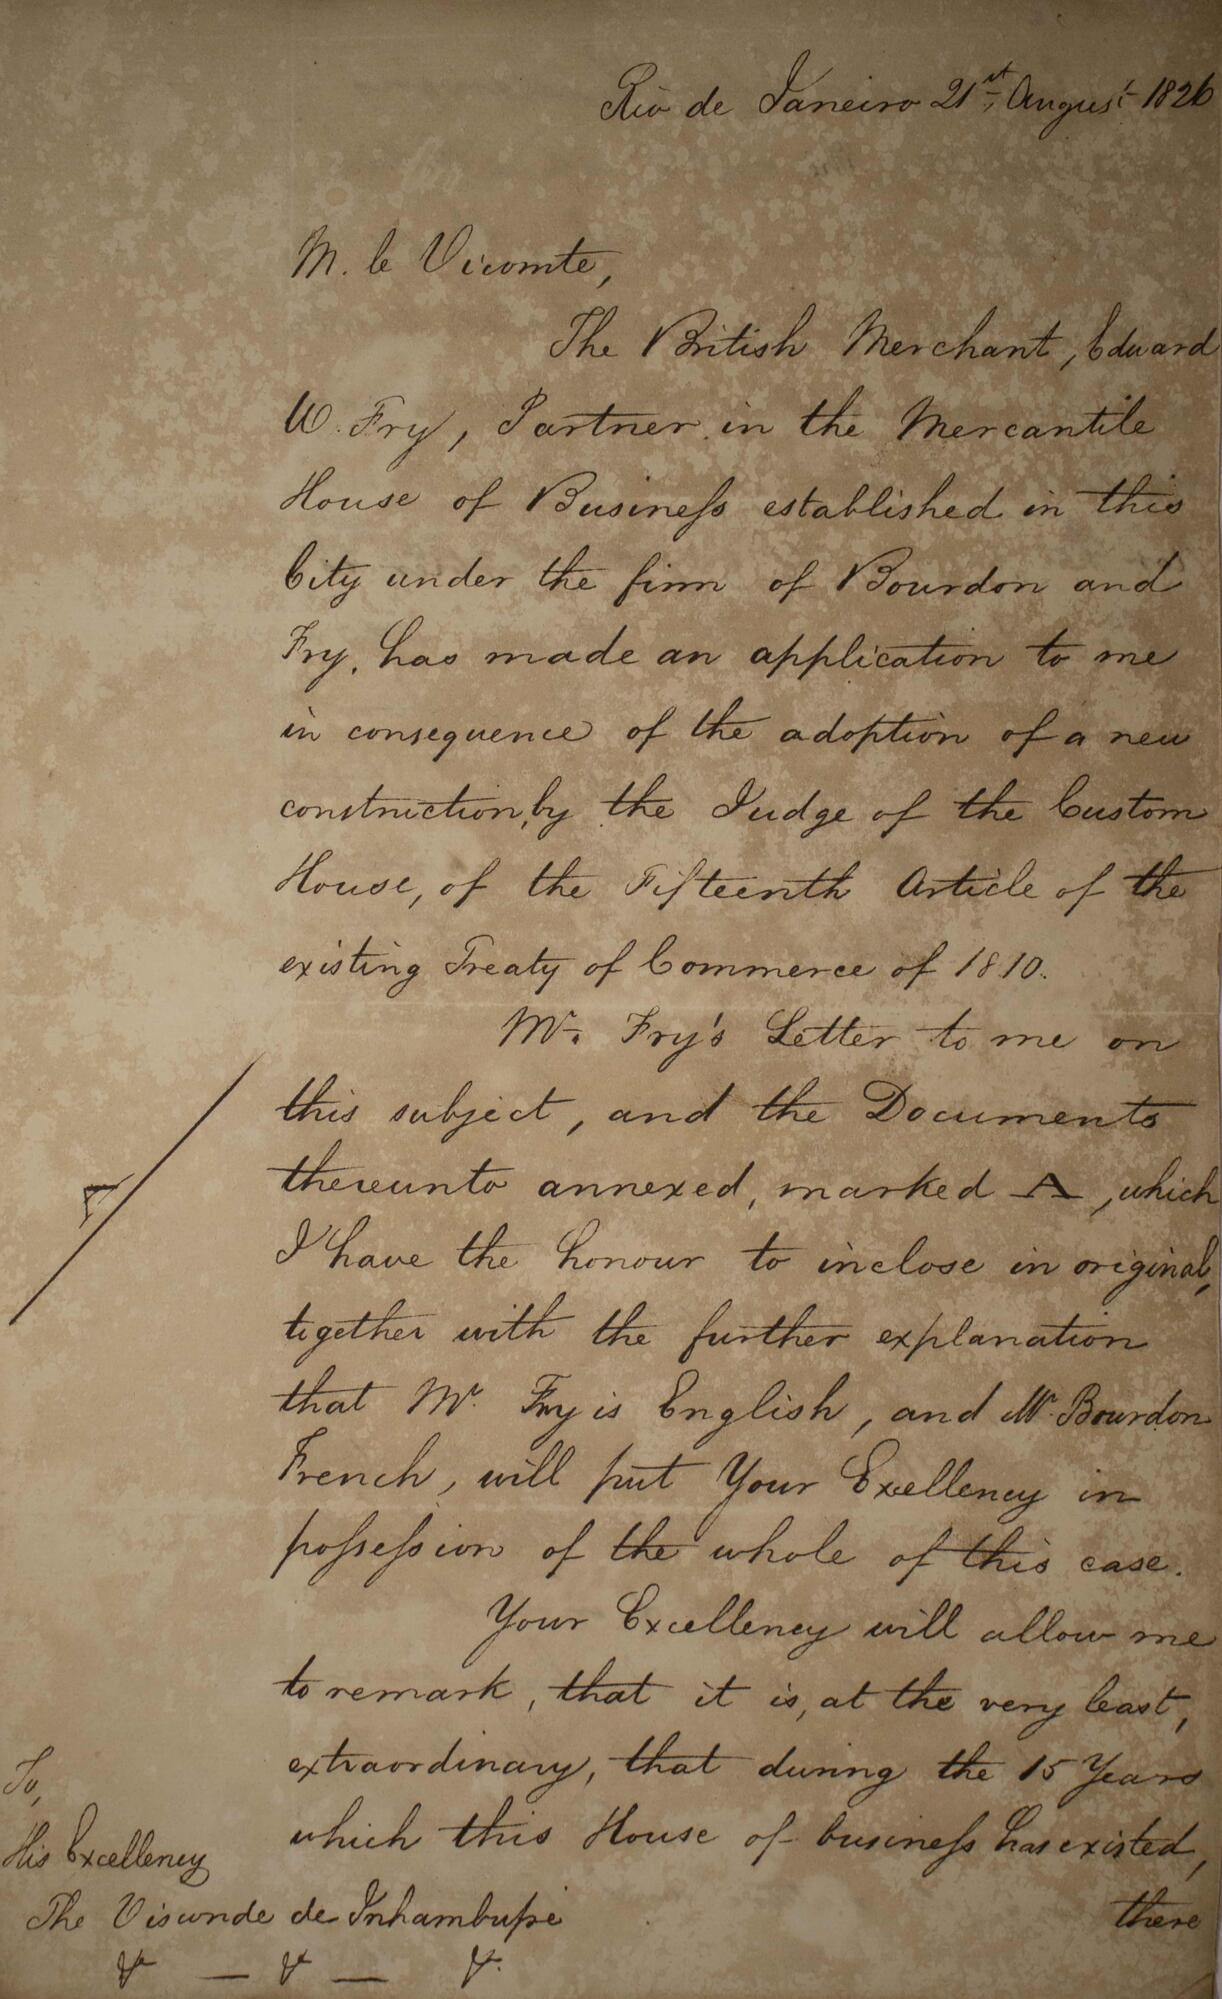 Rio de Janeiro 21st August 1826
M. le Vicomte,
The British Merchant, Edward
W. Fry, Partner in the Mercantile
House of Busineſs established in this
City under the firm of Bourdon and
Fry, has made an application to me
in consequence of the adoption of a new
construction, by the Judge of the Custom
House, of the Fifteenth Article of the
existing Treaty of Commerce of 1810.
Mr. Fry's Letter to me on
this subject, and the Documents
thereunto annexed, marked A, which
A
I have the honour to inclose in original,
together with the further explanation
that Mr. Fry is English, and Mr. Bourdon
French, will put Your Exellency in
poſseſsion of the whole of this case.
Your Excellency will allow me
to remark, that it is, at the very least,
extraordinary, that during the 15 Years
which this House of busineſs has existed,
there
To,
His Excellency
The Visconde de Inhambupe
&c — &c — &c.